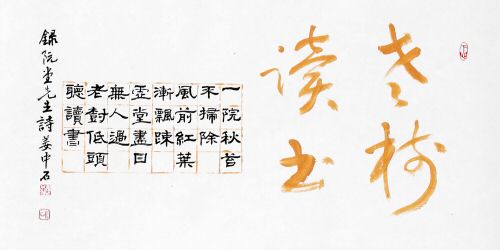 老树
读书
一院秋苔
不掃除
風前紅葉
漸飄疎
堂晝日
無人過
老對低頭
聽讀書
録阮堂先生詩 姜中石